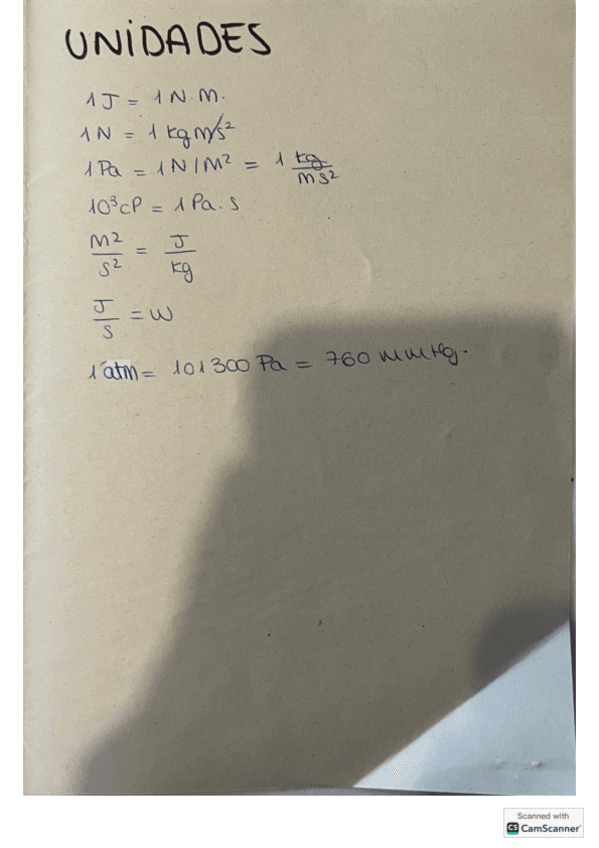 UNiDADES
1J = 1 N.m.
1N = 1 kg m/s²
1Pa = 1N/m² = 1 kg/ms²
10³cP = 1 Pa.s
m²/s² = J/kg
J/s = W
1 atm = 101300 Pa = 760 mmHg.
Scanned with
CS CamScanner